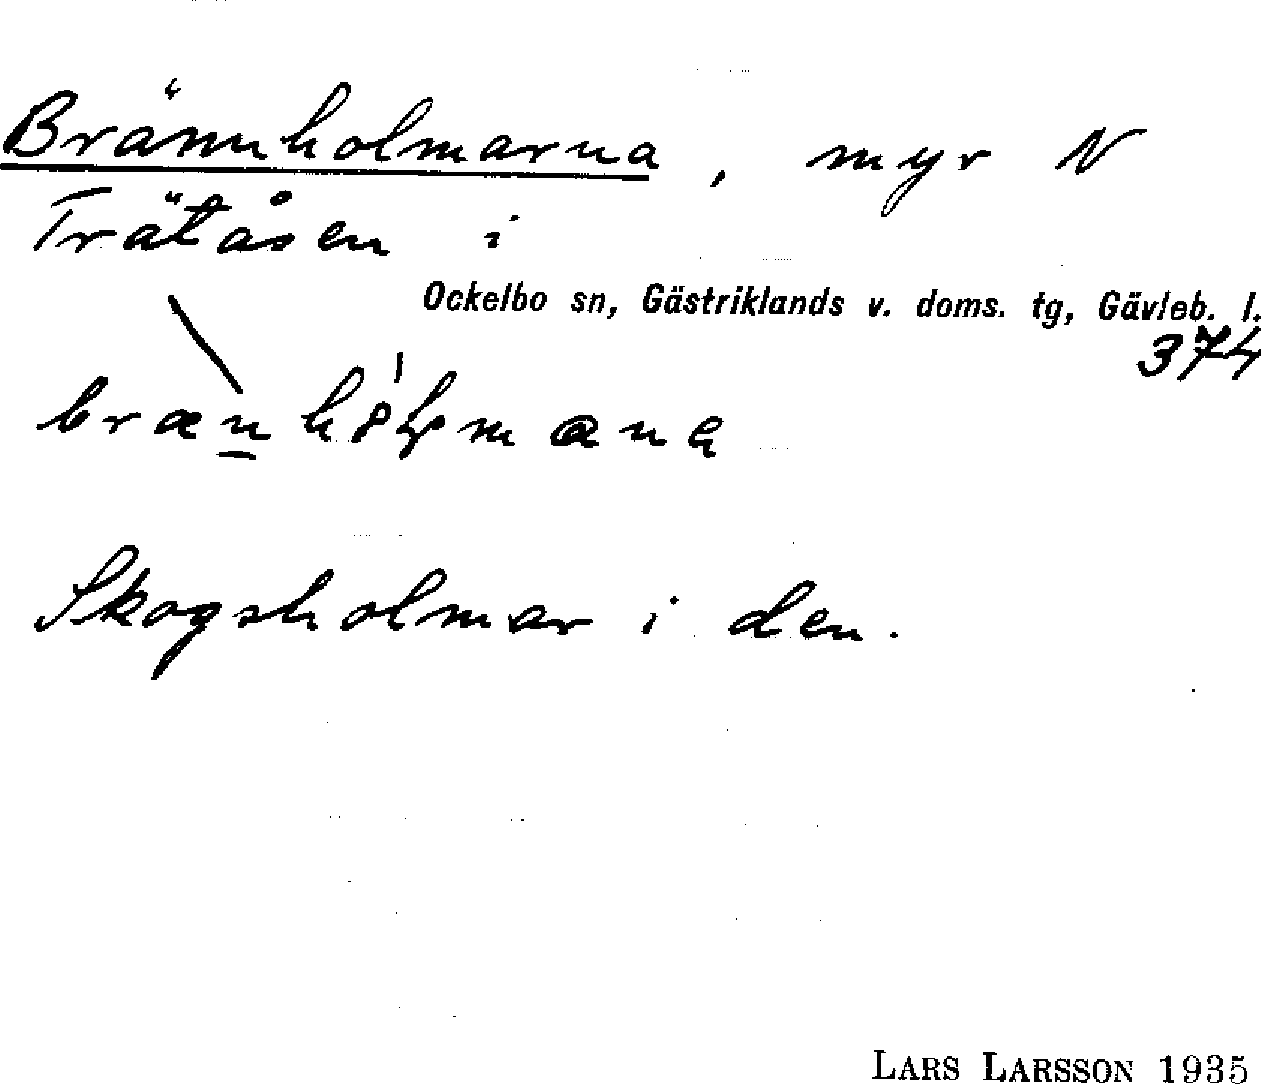 Brännholmarna, myr N
Trätåsen i
Ockelbo sn, Gästriklands v. doms. tg, Gävleb. l.
374
Skogsholmar i den.
LARS LARSSON 1935